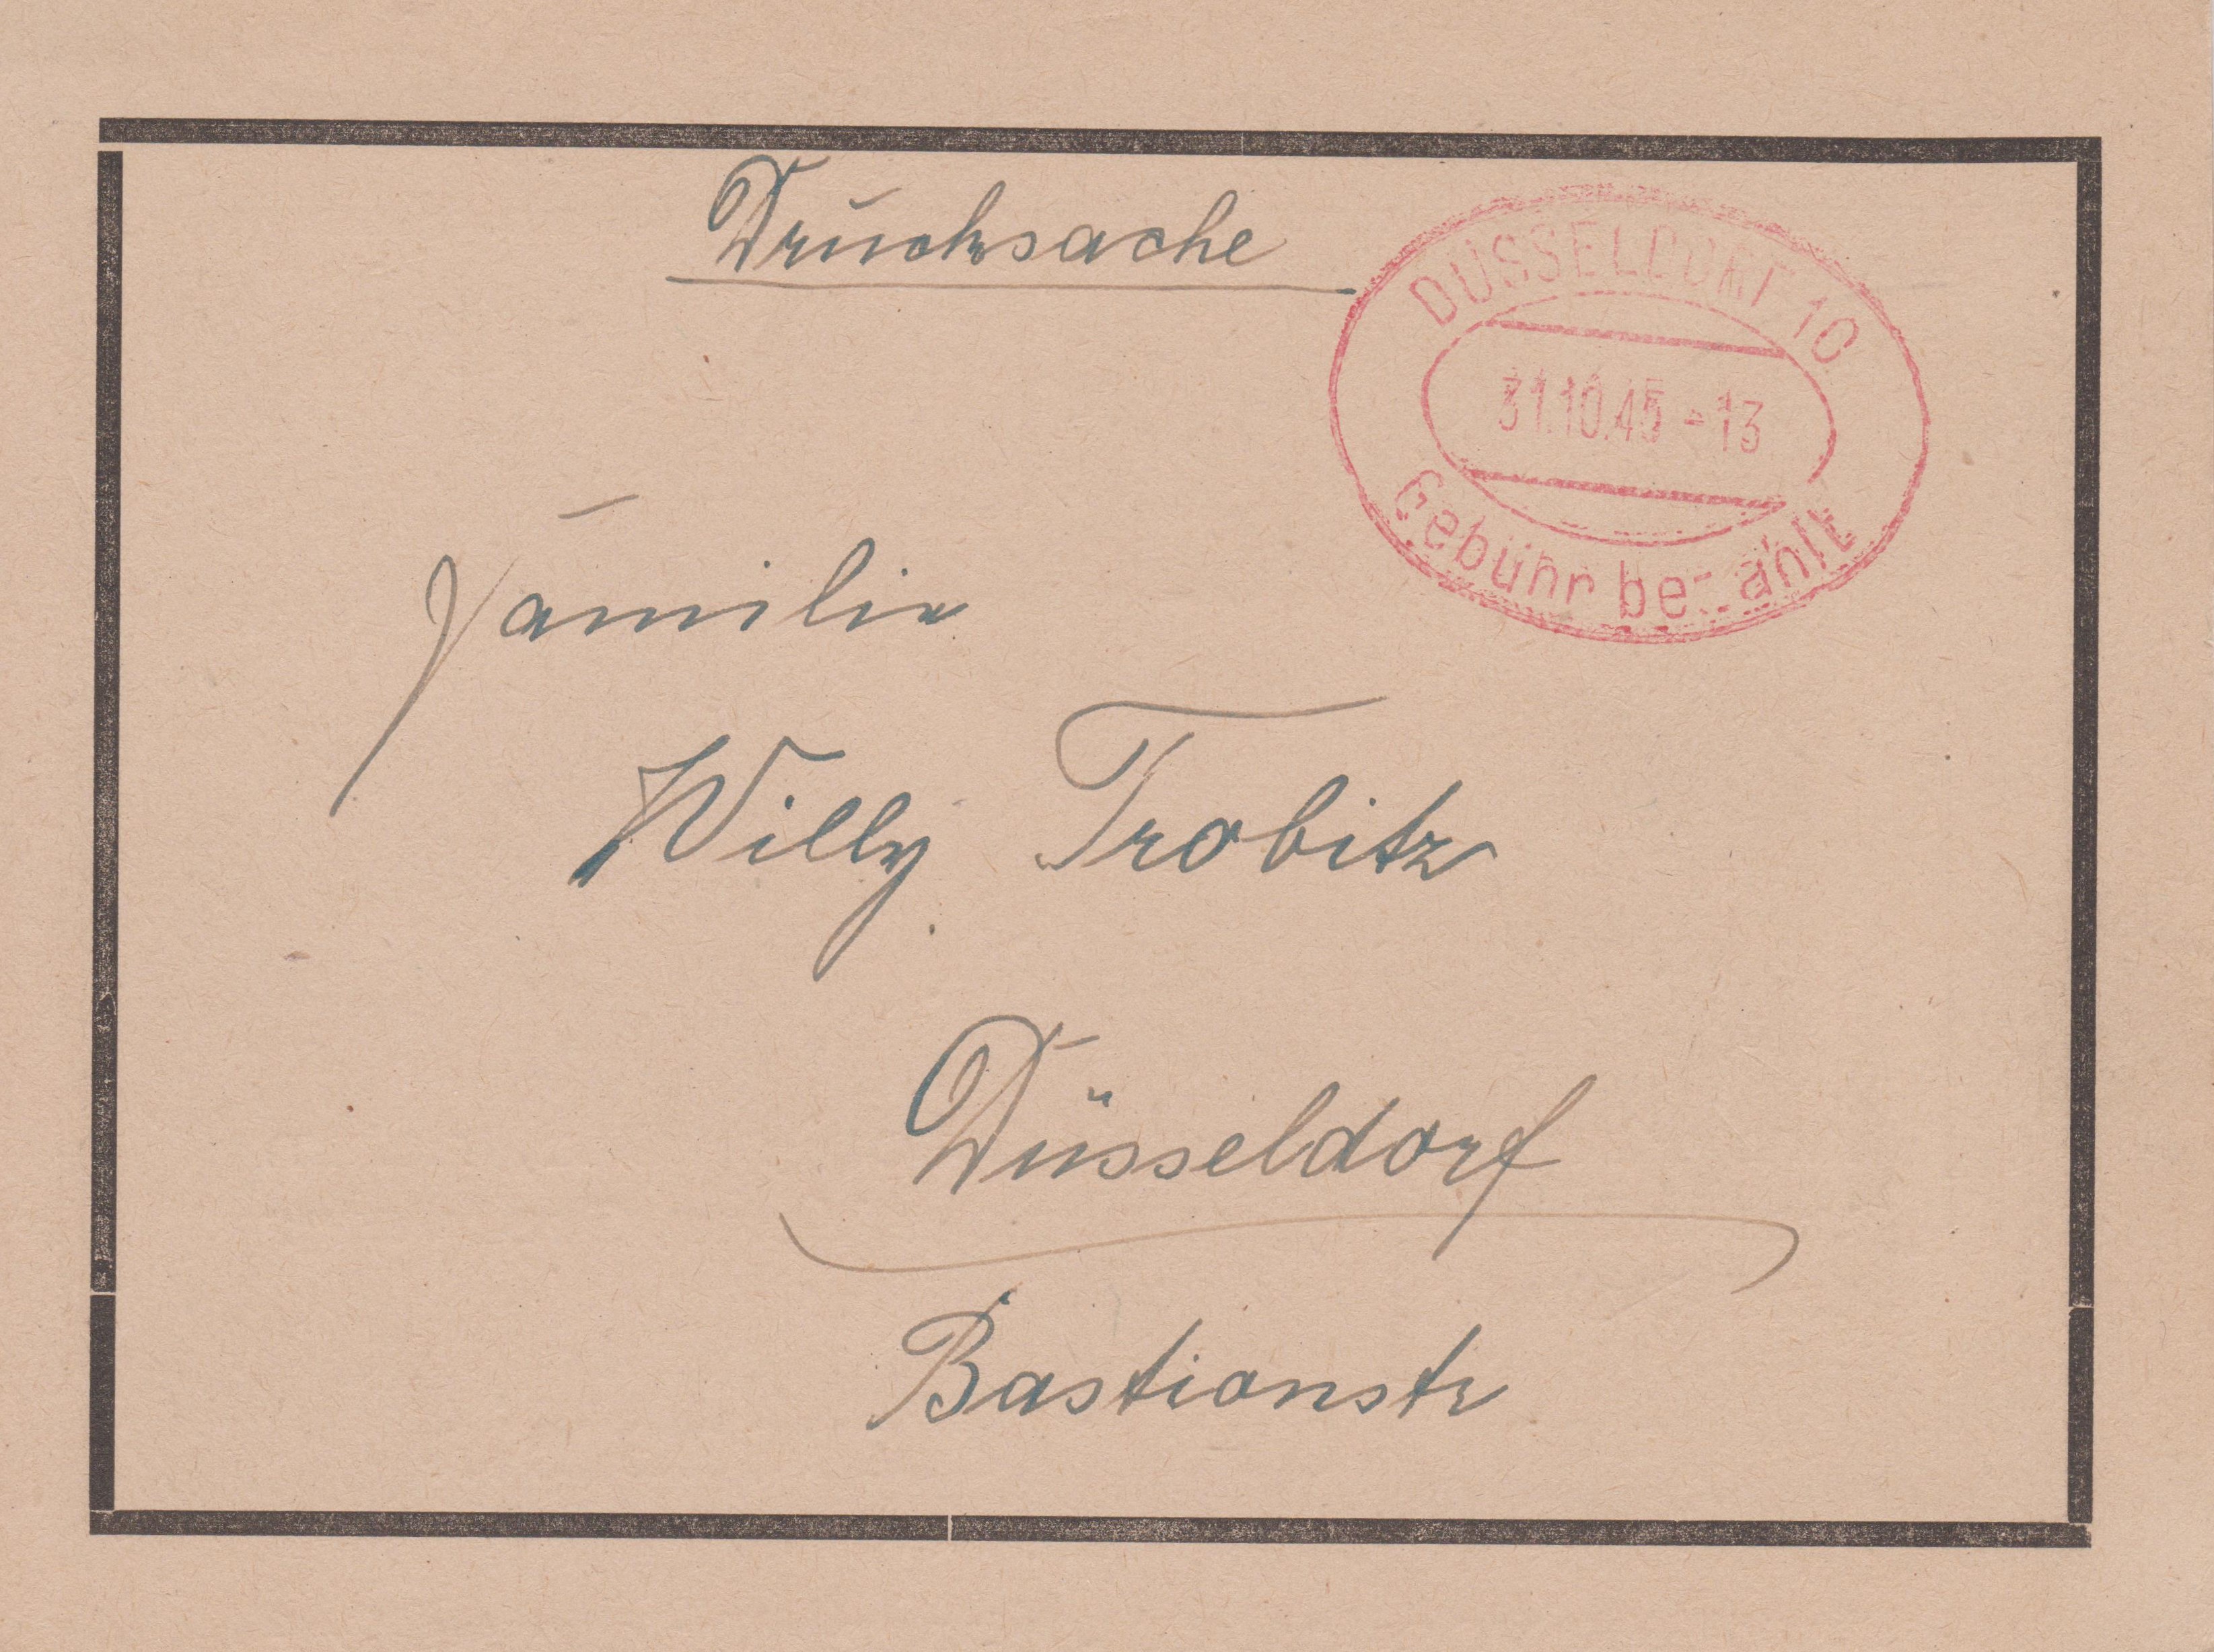 Drucksache
DÜSSELDORF 10
31.10.45 - 13
Gebühr bezahlt
Familie
Willy Trobitz
Düsseldorf
Bastionstr